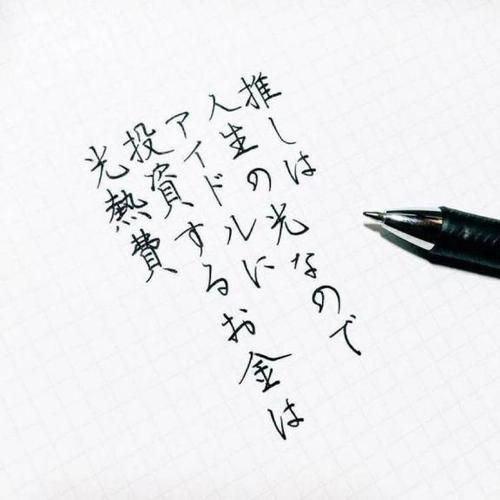 推しは光なので
人生の
アイドルに
投資するお金は
光熱費